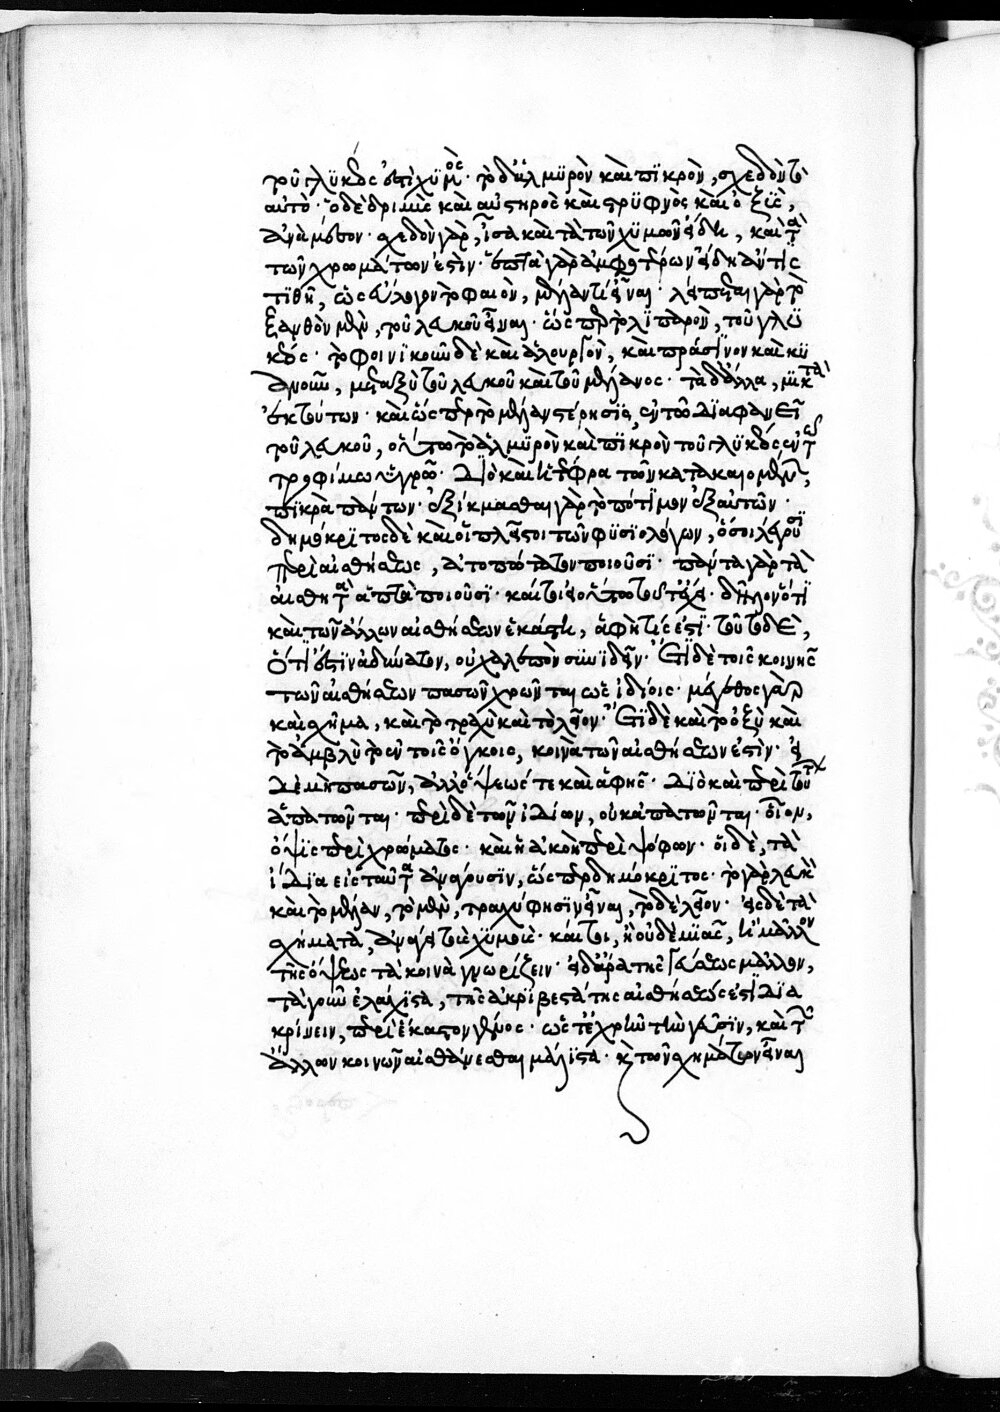 τοῦ γλυκέος ἐστὶ χυμὸς· τὸ δ' ἁλμυρὸν καὶ πικρὸν, σχεδὸν τὸ
αὐτό· ὁ δὲ δριμὺς καὶ αὐστηρὸς καὶ στρυφνὸς καὶ ὀξὺς,
ἀνὰ μέσον· σχεδὸν γὰρ, ἴσα καὶ τὰ τῶν χυμῶν εἴδη, καὶ τὰ
τῶν χρωμάτων ἐστὶν· ἑπτὰ γὰρ ἀμφοτέρων εἴδη ἄν τις
τιθῆ, ὡς εὔλογον τὸ φαιὸν, μέλαν τὶ εἶναι· λείπεται γὰρ τὸ
ξανθὸν μὲν, τοῦ λευκοῦ εἶναι· ὥσπερ τὸ λιπαρὸν, τοῦ γλυ
κέος· τὸ φοινικοῦν δὲ καὶ ἁλουργὸν, καὶ πράσινον καὶ κυ
ανοῦν, μεταξὺ τοῦ λευκοῦ καὶ τοῦ μέλανος· τὰ δ' ἄλλα, μικτὰ
ἐκ τούτων· καὶ ὥσπερ τὸ μέλαν στέρησις ἐν τῶ διαφανεῖ
τοῦ λευκοῦ, οὕτω τὸ ἁλμυρὸν καὶ πικρὸν τοῦ γλυκέος ἐν τῶ
τροφίμω ὑγρῶ· διὸ καὶ ἡ τέφρα τῶν κατακαιομένων,
πικρὰ πάντων· ἐξίκμασται γὰρ τὸ πότιμον ἐξ αὐτῶν·
δημόκριτος δὲ καὶ οἱ πλεῖστοι τῶν φυσιολόγων, ὅσοι λέγουσι
περὶ αἰσθήσεως, ἀτοπώτατον ποιοῦσι· πάντα γὰρ τὰ
αἰσθητὰ ἁπτὰ ποιοῦσι· καίτοι εἰ οὕτω τοῦτ' ἔχει· δῆλον ὅτι
καὶ τῶν ἄλλων αἰσθήσεων ἑκάστη, ἁφή τις ἐστὶ· τοῦτο δὲ,
ὅτι ἐστὶν ἀδύνατον, οὐ χαλεπὸν συνιδεῖν· ἔτι δὲ τοῖς κοινοῖς
τῶν αἰσθήσεων πασῶν χρῶνται ὡς ἰδίοις· μέγεθος γὰρ
καὶ σχῆμα, καὶ τὸ τραχὺ καὶ τὸ λεῖον· ἔτι δὲ καὶ τὸ ὀξὺ καὶ
τὸ ἀμβλὺ τὸ ἐν τοῖς ὄγκοις, κοινὰ τῶν αἰσθήσεων ἐστὶν· εἰ
δὲ μὴ πασῶν, ἀλλ' ὄψεώς τε καὶ ἁφῆς· διὸ καὶ περὶ τούτων
ἀπατῶνται· περὶ δὲ τῶν ἰδίων, οὐκ ἀπατῶνται· οἷον,
ὄψις περὶ χρώματος· καὶ ἡ ἀκοὴ περὶ ψόφων· οἱ δὲ, τὰ
ἴδια εἰς ταῦτα ἀνάγουσιν, ὥσπερ δημόκριτος· τὸ γὰρ λευκὸν
καὶ τὸ μέλαν, τὸ μὲν, τραχύ φησιν εἶναι, τὸ δὲ λεῖον· εἰς δὲ τὰ
σχήματα, ἀνάγει τοὺς χυμοὺς· καίτοι, ἢ οὐδεμιᾶς, ἢ μᾶλλον
τῆς ὄψεως τὰ κοινὰ γνωρίζειν· εἰ δ' ἄρα τῆς γεύσεως μᾶλλον,
τὰ γοῦν ἐλάχιστα, τῆς ἀκριβεστάτης αἰσθήσεώς ἐστι δια
κρίνειν, περὶ ἕκαστον γένος· ὥστ' ἐχρῆν τὴν γεῦσιν, καὶ τῶν
ἄλλων κοινῶν αἰσθάνεσθαι μάλιστα· καὶ τῶν σχημάτων εἶναι